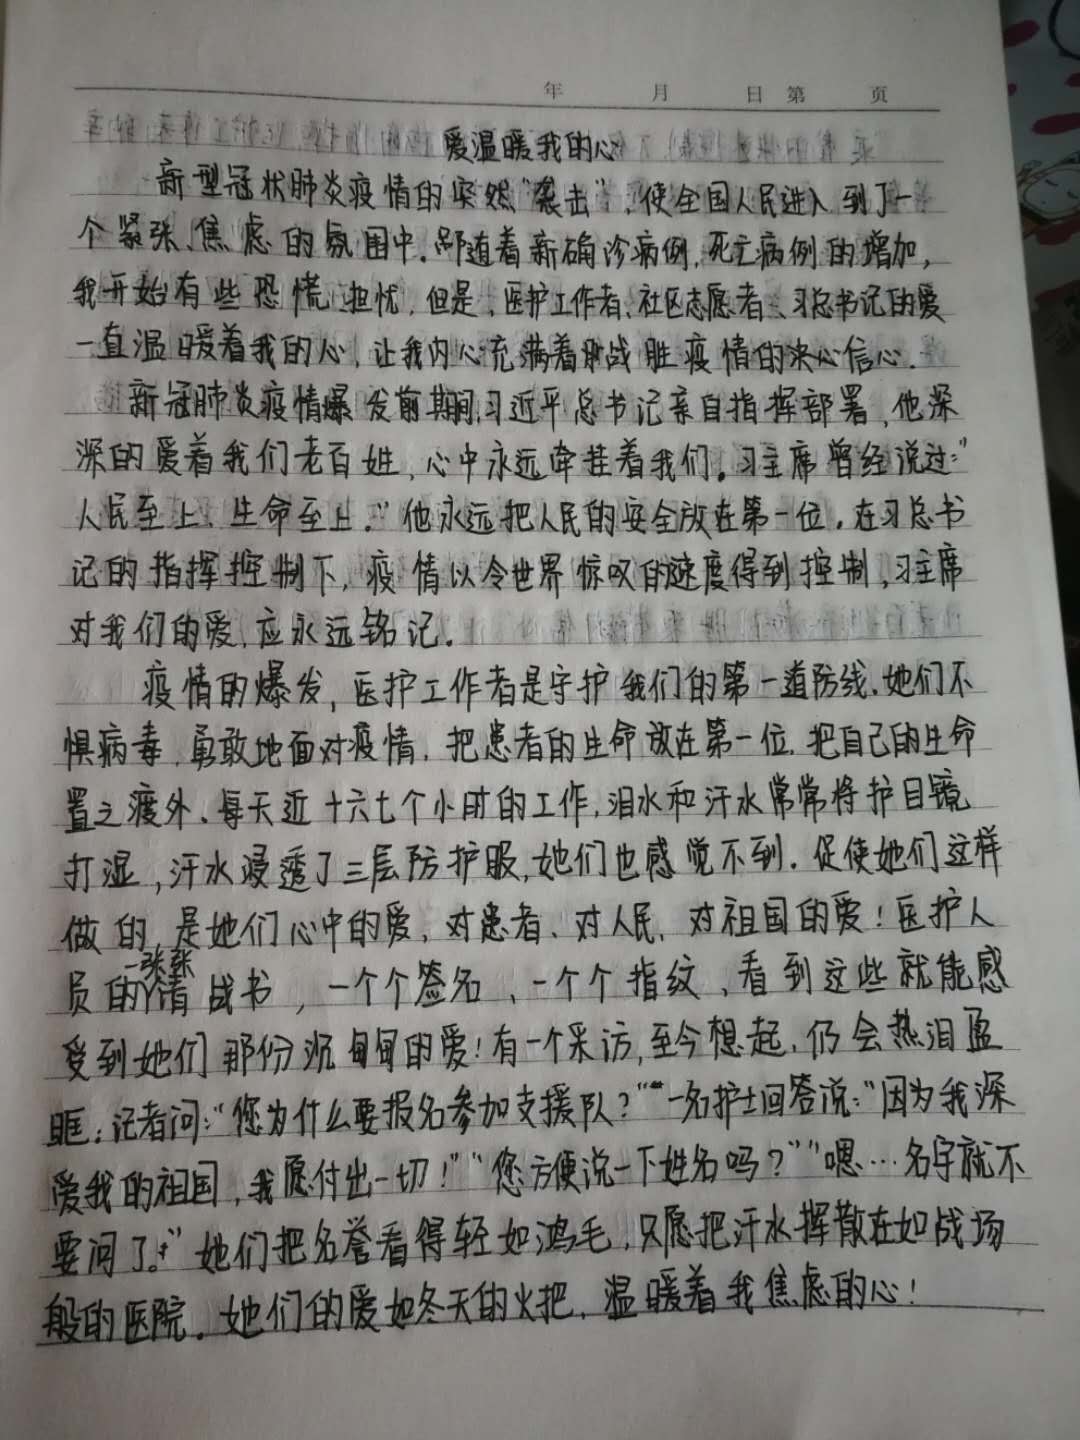 年 月 日 第 页
爱温暖我的心
新型冠状肺炎疫情的突然“袭击”,使全国人民进入到了一
个紧张、焦虑的氛围中。随着新确诊病例,死亡病例的增加,
我开始有些恐慌,担忧,但是,医护工作者、社区志愿者、习总书记的爱
一直温暖着我的心,让我内心充满着战胜疫情的决心信心.
新冠肺炎疫情爆发前期间,习近平总书记亲自指挥部署,他深
深的爱着我们老百姓,心中永远牵挂着我们。习主席曾经说过:“
人民至上、生命至上。”他永远把人民的安全放在第一位,在习总书
记的指挥控制下,疫情以令世界惊叹的速度得到控制,习主席
对我们的爱,应永远铭记.
疫情的爆发,医护工作者是守护我们的第一道防线.她们不
惧病毒,勇敢地面对疫情,把患者的生命放在第一位,把自己的生命
置之渡外、每天近十六七个小时的工作,泪水和汗水常常将护目镜
打湿,汗水浸透了三层防护服,她们也感觉不到.促使她们这样
做的,是她们心中的爱,对患者、对人民,对祖国的爱!医护人
员的一张张请战书,一个个签名、一个个指纹,看到这些就能感
受到她们那份沉甸甸的爱!有一个采访,至今想起,仍会热泪盈
眶:记者问:“您为什么要报名参加支援队?”“一名护士回答说:“因为我深
爱我的祖国,我愿付出一切!”“您方便说一下姓名吗?”“嗯…名字就不
要问了。”她们把名誉看得轻如鸿毛,只愿把汗水挥散在如战场
般的医院。她们的爱如冬天的火把,温暖着我焦虑的心!